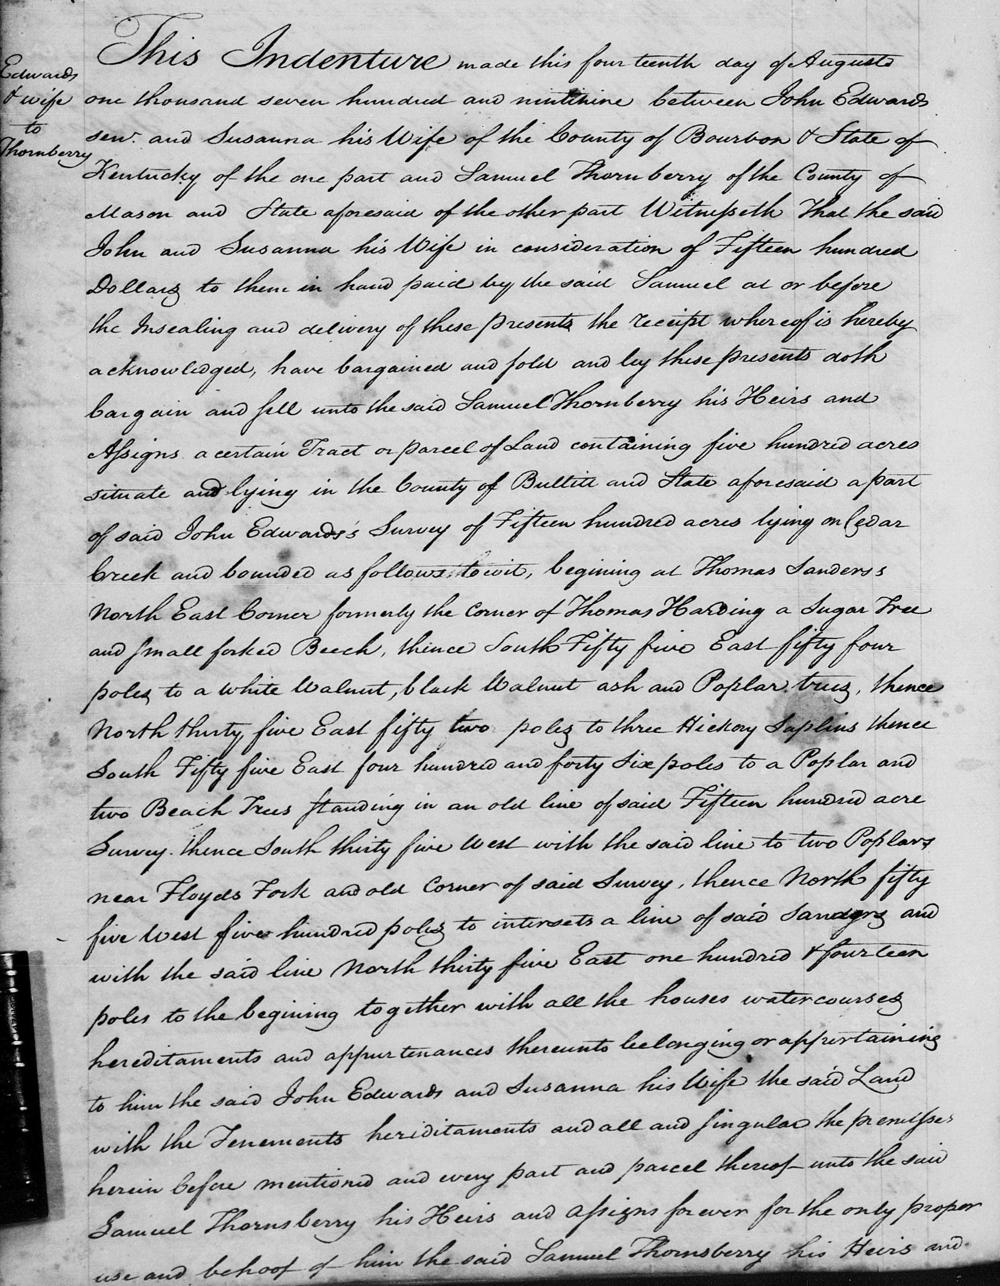 Edwards
& wife
to
Thornberry
This Indenture made this four teenth day of Augusto
one thousand seven hundred and nintinine between John Edwards
senr. and Susanna his Wife of the County of Bourbon & State of
Kentucky of the one part and Samuel Thornberry of the County of
Mason and State aforesaid of the other part Witnesseth That the said
John and Susanna his Wife in consideration of Fifteen hundred
Dollars to them in hand paid by the said Samuel at or before
the Insealing and delivery of these presents the receipt whereof is hereby
acknowledged, have bargained and sold and by these presents doth
bargain and sell unto the said Samuel Thornberry his Heirs and
Assigns a certain Tract or parcel of Land containing five hundred acres
situate and lying in the County of Bullitt and State aforesaid a part
of said John Edwards's Survey of Fifteen hundred acres lying on Cedar
Creek and bounded as follows towit, begining at Thomas Sanders's
North East Corner formerly the Corner of Thomas Harding a Sugar Tree
and small forked Beech, thence South Fifty five East fifty four
poles to a white Walnut, black Walnut ash and Poplar trees, thence
North thirty five East fifty two poles to three Hickory Saplins thence
South Fifty five East four hundred and forty Six poles to a Poplar and
two Beach Trees standing in an old line of said Fifteen hundred acre
Survey thence South thirty five West with the said line to two Poplars
near Floyds Fork and old Corner of said Survey, thence North fifty
five West five hundred poles to intersets a line of said Sanders and
with the said line North thirty five East one hundred & fourteen
poles to the begining together with all the houses watercourses
hereditaments and appurtenances thereunto belonging or appertaining
to him the said John Edwards and Susanna his Wife the said Land
with the Tenements heriditaments and all and singular the premisses
herein before mentioned and every part and parcel thereof unto the said
Samuel Thornsberry his Heirs and assigns forever for the only proper
use and behoof of him the said Samuel Thornsberry his Heirs and